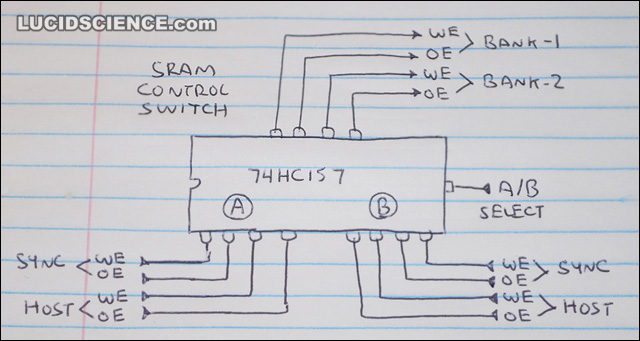 LUCIDSCIENCE.COM
SRAM
CONTROL
SWITCH
WE
OE
BANK-1
WE
OE
BANK-2
74HC157
A
B
A/B
SELECT
SYNC
WE
OE
HOST
WE
OE
WE
OE
SYNC
WE
OE
HOST